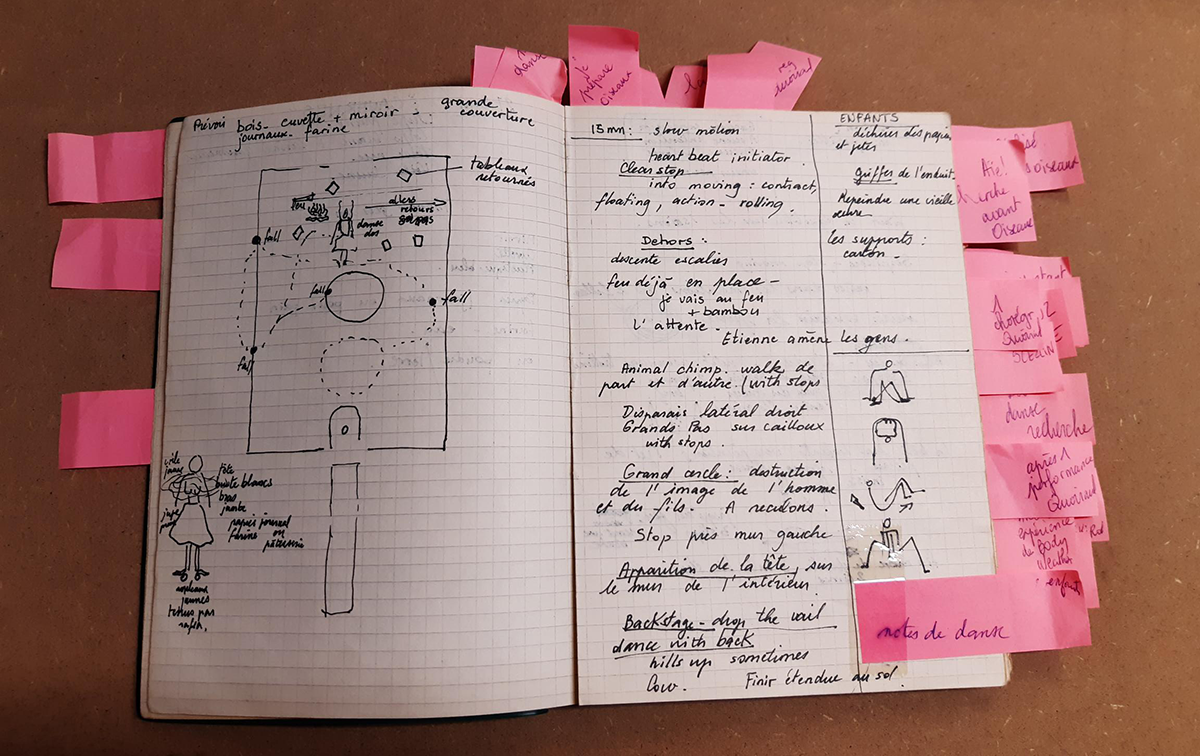 Prévoir bois - cuvette + miroir -
journaux - farine
grande
couverture
tableaux
retournés
feu
allers
retours
danse
dos
fall
fall
fall
fall
voile
jaune
tête
buste blancs
bras
jambe
jupe
papier journal
farine ou
pâtisserie
jaunes
tenus par
15 mn: slow motion
heart beat initiator.
Clear stop
into moving: contract,
floating, action - rolling.
Dehors:
descente escalier
feu déjà en place -
je vais au feu
+ bambou
l'attente.
Etienne amène les gens.
Animal chimp. walk de
part et d'autre (with stops
Disparais latéral droit
Grands Pas sur cailloux
with stops.
Grand cercle: destruction
de l'image de l'homme
et du fils. A reculons.
Stop près mur gauche
Apparition de la tête, sur
le mur de l'intérieur.
Backstage - drop the vail
dance with back
hills up sometimes
low. Finir étendue au sol.
ENFANTS
déchirer des papiers
et jetés
griffes de l'enduit.
Repeindre une vieille
les supports:
carton -
je
prépare
Oiseaux
Oiseaux
Aïe!
cherche
avant
Oiseaux
1
danse
recherche
après 1
performance
expérience
de Body
Weather
enfant
notes de danse